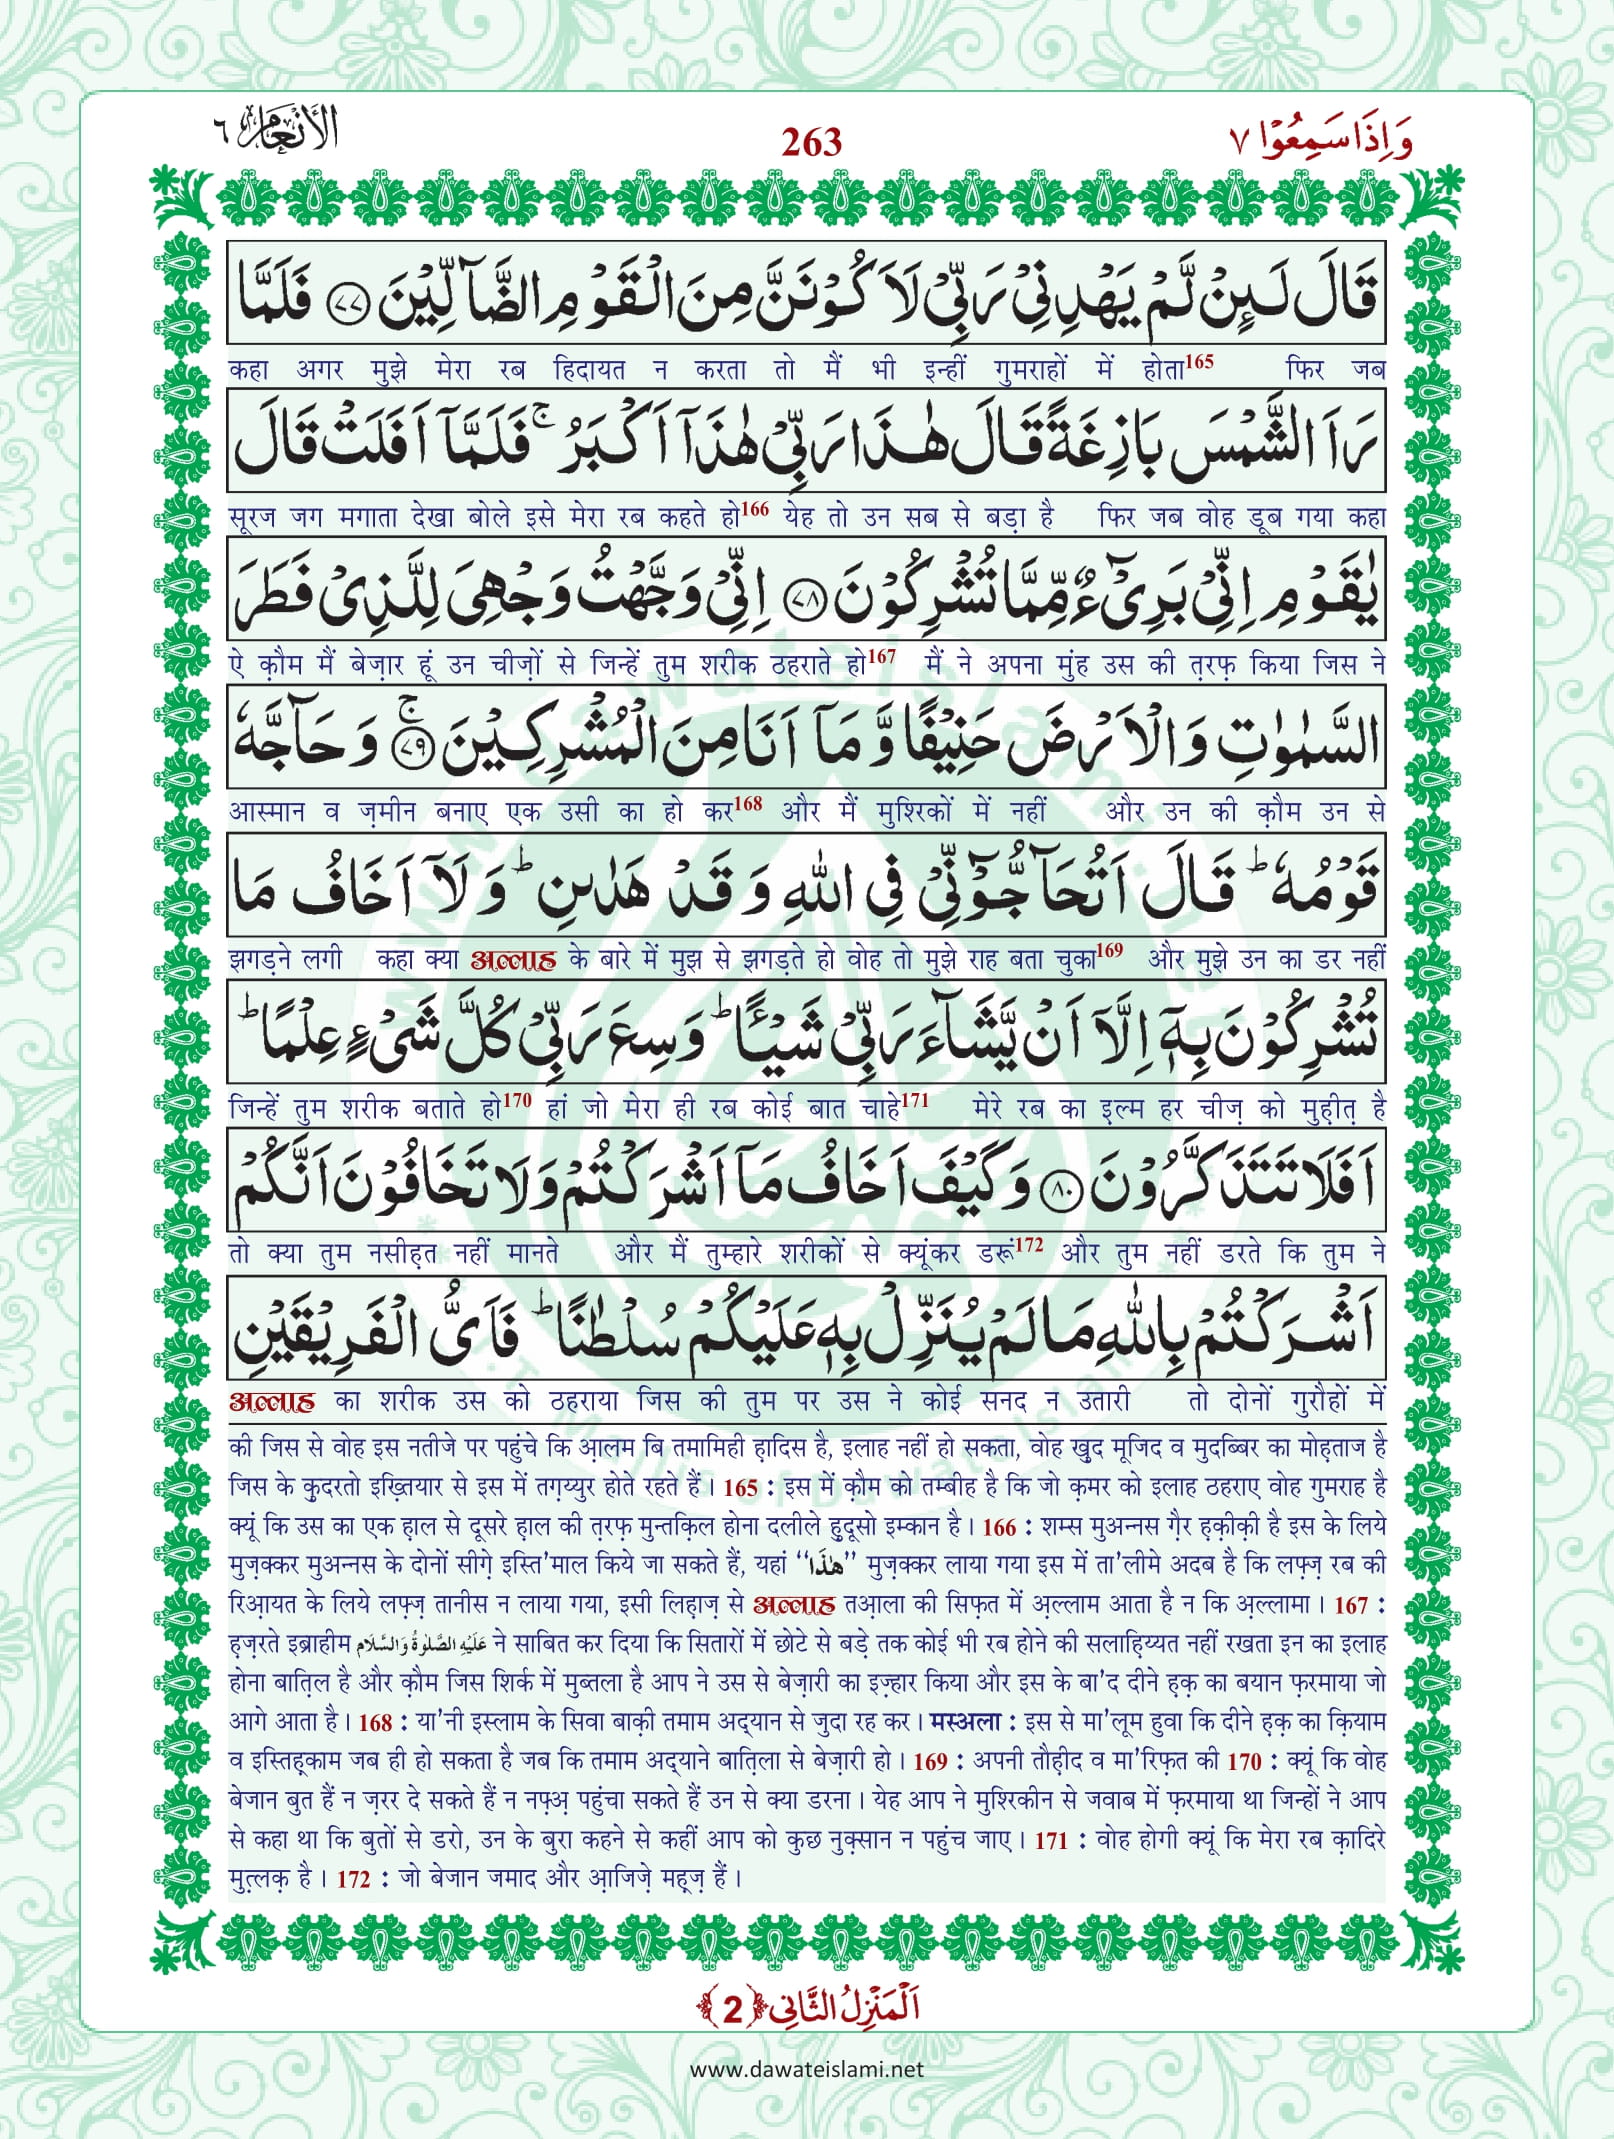 وَاِذَا سَمِعُوْا ٧
263
الأَنْعَام ٦
قَالَ لَىِٕنْ لَّمْ یَهْدِنِیْ رَبِّیْ لَاَكُوْنَنَّ مِنَ الْقَوْمِ الضَّآلِّیْنَ ﴿۷۷﴾ فَلَمَّا
कहा अगर मुझे मेरा रब हिदायत न करता तो मैं भी इन्हीं गुमराहों में होता165 फिर जब
رَاَ الشَّمْسَ بَازِغَةً قَالَ هٰذَا رَبِّیْ هٰذَاۤ اَكْبَرُ ۚ فَلَمَّاۤ اَفَلَتْ قَالَ
सूरज जग मगाता देखा बोले इसे मेरा रब कहते हो166 येह तो उन सब से बड़ा है फिर जब वोह डूब गया कहा
یٰقَوْمِ اِنِّیْ بَرِیْٓءٌ مِّمَّا تُشْرِكُوْنَ ﴿۷۸﴾ اِنِّیْ وَجَّهْتُ وَجْهِیَ لِلَّذِیْ فَطَرَ
ऐ क़ौम मैं बेज़ार हूं उन चीज़ों से जिन्हें तुम शरीक ठहराते हो167 मैं ने अपना मुंह उस की त़रफ़ किया जिस ने
السَّمٰوٰتِ وَالْاَرْضَ حَنِیْفًا وَّمَاۤ اَنَا مِنَ الْمُشْرِكِیْنَ ﴿۷۹﴾ۚ وَحَآجَّهٗ
आस्मान व ज़मीन बनाए एक उसी का हो कर168 और मैं मुश्रिकों में नहीं और उन की क़ौम उन से
قَوْمُهٗ ؕ قَالَ اَتُحَآجُّوْٓنِّیْ فِی اللّٰهِ وَقَدْ هَدٰىنِ ؕ وَلَاۤ اَخَافُ مَا
झगड़ने लगी कहा क्या अल्लाह के बारे में मुझ से झगड़ते हो वोह तो मुझे राह बता चुका169 और मुझे उन का डर नहीं
تُشْرِكُوْنَ بِهٖۤ اِلَّاۤ اَنْ یَّشَآءَ رَبِّیْ شَیْــًٔا ؕ وَسِعَ رَبِّیْ كُلَّ شَیْءٍ عِلْمًا ؕ
जिन्हें तुम शरीक बताते हो170 हां जो मेरा ही रब कोई बात चाहे171 मेरे रब का इ़ल्म हर चीज़ को मुह़ीत़ है
اَفَلَا تَتَذَكَّرُوْنَ ﴿۸۰﴾ وَكَیْفَ اَخَافُ مَاۤ اَشْرَكْتُمْ وَلَا تَخَافُوْنَ اَنَّكُمْ
तो क्या तुम नसीह़त नहीं मानते और मैं तुम्हारे शरीकों से क्यूंकर डरूं172 और तुम नहीं डरते कि तुम ने
اَشْرَكْتُمْ بِاللّٰهِ مَا لَمْ یُنَزِّلْ بِهٖ عَلَیْكُمْ سُلْطٰنًا ؕ فَاَیُّ الْفَرِیْقَیْنِ
अल्लाह का शरीक उस को ठहराया जिस की तुम पर उस ने कोई सनद न उतारी तो दोनों गुरौहों में
की जिस से वोह इस नतीजे पर पहुंचे कि आ़लम बि तमामिही ह़ादिस है, इलाह नहीं हो सकता, वोह ख़ुद मूजिद व मुदब्बिर का मोह़ताज है
जिस के क़ुदरतो इख़्तियार से इस में तग़य्युर होते रहते हैं। 165 : इस में क़ौम को तम्बीह है कि जो क़मर को इलाह ठहराए वोह गुमराह है
क्यूं कि उस का एक ह़ाल से दूसरे ह़ाल की त़रफ़ मुन्तक़िल होना दलीले हु़दूसो इम्कान है। 166 : शम्स मुअन्नस ग़ैर ह़क़ीक़ी है इस के लिये
मुज़क्कर मुअन्नस के दोनों सीग़े इस्ति'माल किये जा सकते हैं, यहां ''هٰذَا'' मुज़क्कर लाया गया इस में ता'लीमे अदब है कि लफ़्ज़ रब की
रिआ़यत के लिये लफ़्ज़ तानीस न लाया गया, इसी लिह़ाज़ से अल्लाह तआ़ला की सिफ़त में अ़ल्लाम आता है न कि अ़ल्लामा। 167 :
ह़ज़रते इब्राहीम عَلَيْهِ الصَّلٰوةُ وَالسَّلَام ने साबित कर दिया कि सितारों में छोटे से बड़े तक कोई भी रब होने की सलाह़िय्यत नहीं रखता इन का इलाह
होना बात़िल है और क़ौम जिस शिर्क में मुब्तला है आप ने उस से बेज़ारी का इज़्हार किया और इस के बा'द दीने ह़क़ का बयान फ़रमाया जो
आगे आता है। 168 : या'नी इस्लाम के सिवा बाक़ी तमाम अद्यान से जुदा रह कर। मस्अला : इस से मा'लूम हुवा कि दीने ह़क़ का क़ियाम
व इस्तिह़्काम जब ही हो सकता है जब कि तमाम अद्याने बात़िला से बेज़ारी हो। 169 : अपनी तौह़ीद व मा'रिफ़त की 170 : क्यूं कि वोह
बेजान बुत हैं न ज़रर दे सकते हैं न नफ़्अ़ पहुंचा सकते हैं उन से क्या डरना। येह आप ने मुश्रिकीन से जवाब में फ़रमाया था जिन्हों ने आप
से कहा था कि बुतों से डरो, उन के बुरा कहने से कहीं आप को कुछ नुक़्सान न पहुंच जाए। 171 : वोह होगी क्यूं कि मेरा रब क़ादिरे
मुत़्लक़ है। 172 : जो बेजान जमाद और आ़जिज़े मह़्ज़ हैं।
اَلْمَنْزِلُ الثَّانِی ﴿2﴾
www.dawateislami.net